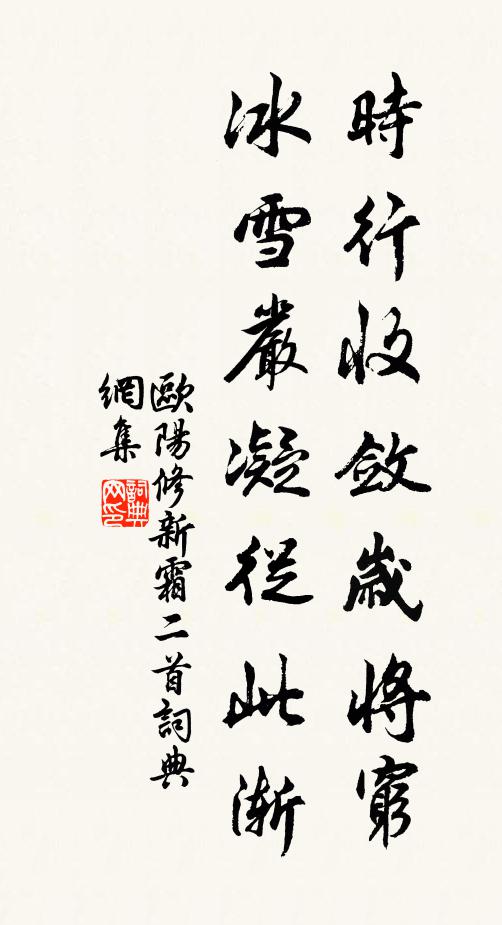 時行收斂歲將窮
冰雪嚴凝從此漸
歐陽修新霜二首詞典
網集
詞典網印